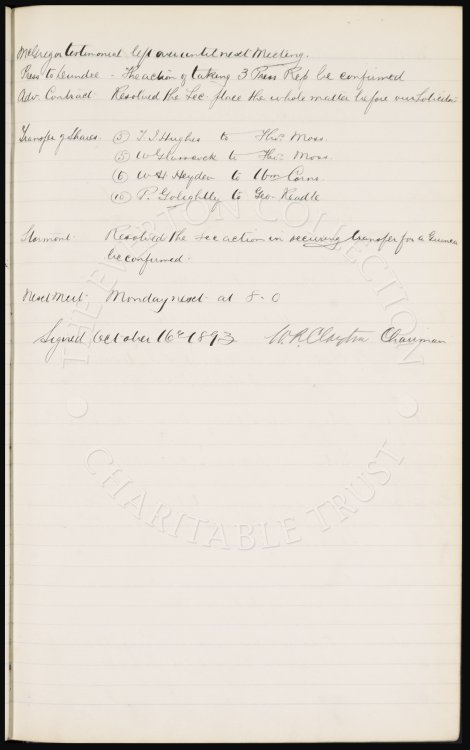 McGregor testimonial left over until next Meeting.
Press to Dundee - The action of taking 3 Press Rep be confirmed
Adv. Contract Resolved the Sec. place the whole matter before our Solicitor
Transfer of Shares (5) T. J. Hughes to Thos. Moss.
(5) W to Thos. Moss.
(6) W. H. Heyden to Wm Corns.
(10) P. Golightly to Geo.
Stormont. Resolved the Sec action in securing transfer for a Guinea
be confirmed.
Next Meet. Monday next at 8.0
Signed October 16th 1893 W. R. Clayton Chairman
THE EVERTON COLLECTION
CHARITABLE TRUST